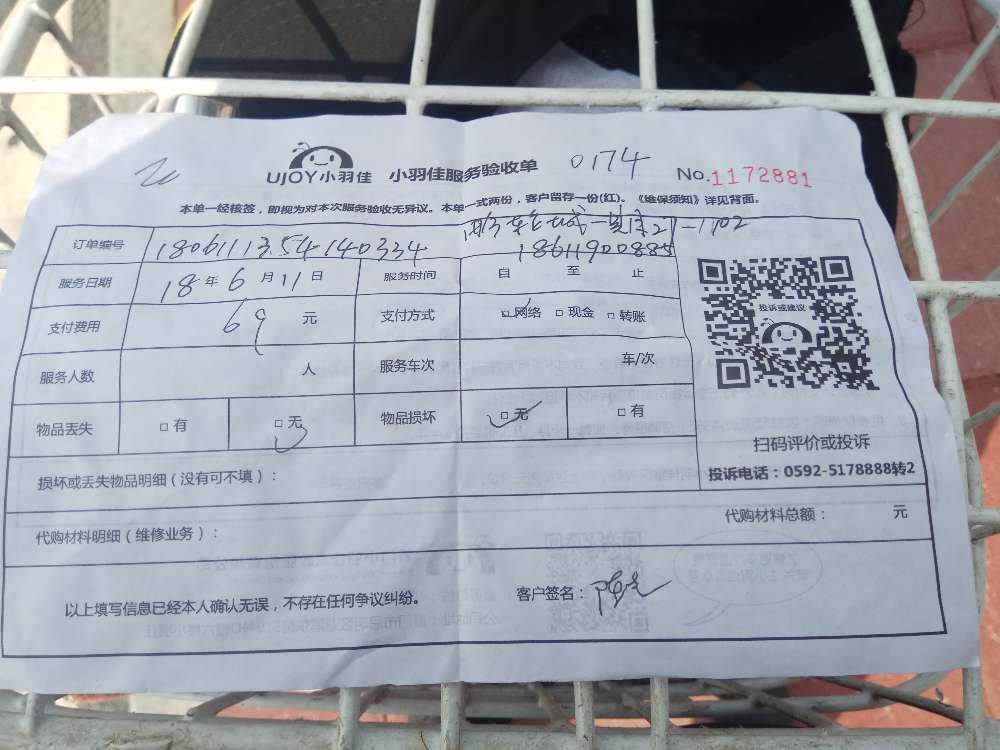 UJOY小羽佳 小羽佳服务验收单 0174 No.1172881
本单一经核签，即视为对本次服务验收无异议。本单一式两份，客户留存一份(红)。《维保须知》详见背面。
-1102
订单编号 1806111354140334 18611900885
服务日期 18 年 6 月 11 日 服务时间 自 至 止
支付费用 69 元 支付方式 □ 网络 □ 现金 □ 转账
投诉或建议
服务人数 人 服务车次 车/次
物品丢失 □ 有 □ 无 物品损坏 □ 无 □ 有
扫码评价或投诉
投诉电话：0592-5178888转2
损坏或丢失物品明细（没有可不填）：
代购材料明细（维修业务）： 代购材料总额： 元
以上填写信息已经本人确认无误，不存在任何争议纠纷。 客户签名：